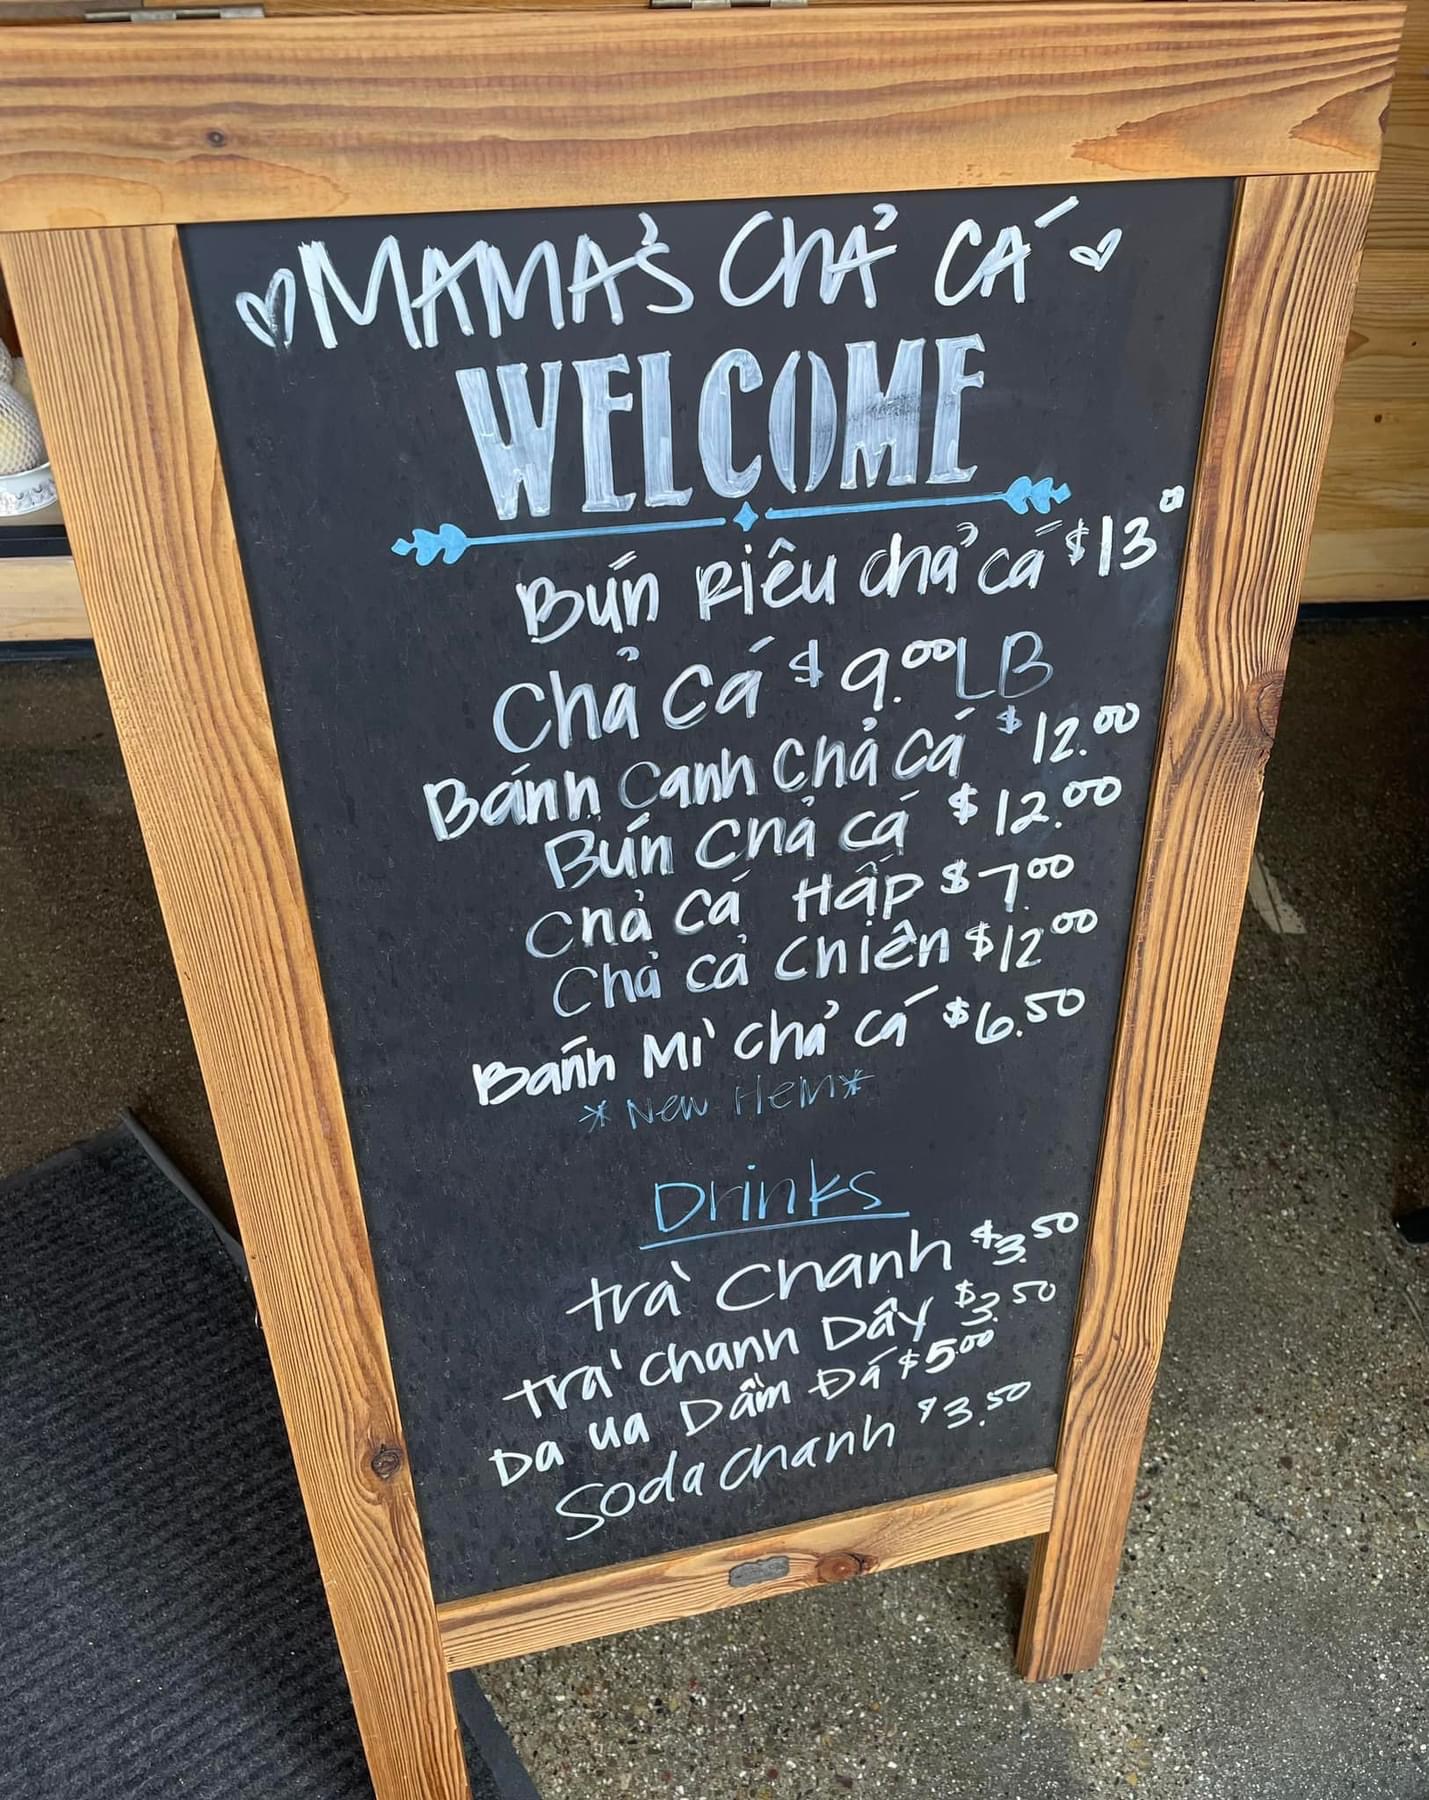 MAMA'S CHẢ CÁ
WELCOME
Bún Riêu chả cá $13.00
Chả Cá $9.00 LB
Bánh canh chả cá $12.00
Bún Chả cá $12.00
Chả cá Hấp $7.00
Chả cá chiên $12.00
Bánh Mì chả cá $6.50
*New Item*
Drinks
trà Chanh $3.50
trà chanh Dây $3.50
Da ua Dầm Đá $5.00
Soda chanh $3.50